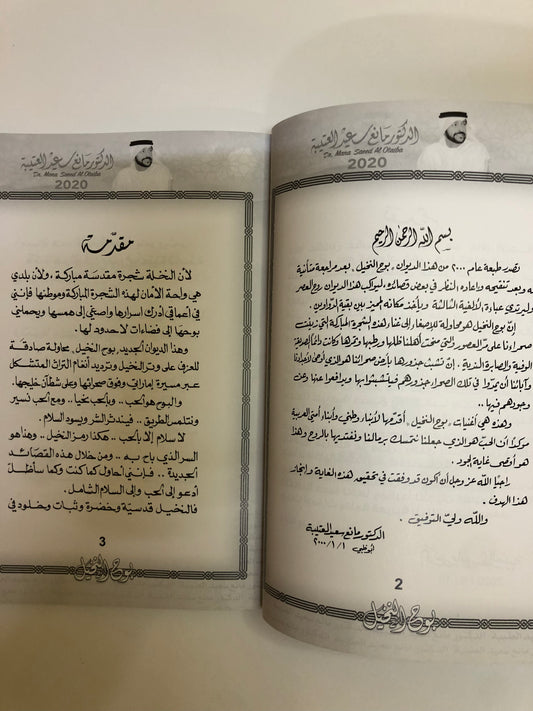 الدكتور مانع سعيد العتيبة
Dr. Mana Saeed Al Otaiba
2020
بسم الله الرحمن الرحيم
تصدر طبعة عام ٢٠٠٠ من هذا الديوان، بوح النخيل، بعد مراجعة متأنية
له وبعد تنقيحه وإعادة النظر في بعض قصائده، ليواكب هذا الديوان روح العصر
ويرتدي عباءة الألفية الثالثة ويأخذ مكانه المميز بين بقية الدواوين.
إن بوح النخيل هو محاولة للإصغاء إلى غناء هذه الشجرة المباركة التي زينت
صحراءنا على مر العصور.. والتي منحت أهلنا ظلها ورطبها وتمرها وكانت دائماً الصديقة
الوفية والصابرة الندية. إن تشبث جذورها بأرض صحرائنا هو الذي أوحى لأجدادنا
وآبائنا أن يمدوا في تلك الصحراء جذورهم فيتشبثوا بها ويدافعوا عنها وعن
وجودهم فيها..
وهذه هي أغنيات، بوح النخيل، أقدمها لأبناء وطني وأبناء أمتي العربية
مؤكداً أن الحب هو الذي جعلنا نتمسك برمالنا ونفتديها بالروح وهذا
هو أقصى غاية الجود.
راجياً الله عز وجل أن أكون قد وفقت في تحقيق هذه الغاية وإنجاز
هذا الهدف.
والله ولي التوفيق.
الدكتور مانع سعيد العتيبة
أبوظبي ٢٠٠٠/١/١
2
بوح النخيل
الدكتور مانع سعيد العتيبة
Dr. Mana Saeed Al Otaiba
2020
مقدمة
لأن النخلة شجرة مقدسة مباركة، ولأن بلدي
هي واحة الأمان لهذه الشجرة المباركة وموطنها فإنني
في أعماقي أدرك أسرارها وأصغي إلى همسها ويحملني
بوحها إلى فضاءات لا حدود لها.
وهذا الديوان الجديد، بوح النخيل، محاولة صادقة
للعزف على وتر النخيل وترديد أنغام التراث المتشكل
عبر مسيرة إماراتي وفوق صحرائها وعلى شطآن خليجها.
واليوم هو الحب.. وبالحب نحيا.. ومع الحب نسير
ونتلمس الطريق.. فيندثر الشر ويسود السلام.
لا سلام إلا بالحب.. هكذا رمز النخيل.. وهذا هو
السر الذي باح به.. ومن خلال هذه القصائد
الجديدة.. فإنني أحاول كما كنت وكما سأظل
أدعو إلى الحب وإلى السلام الشامل.
فالنخيل قدسية وخضرة وثبات وخلود في
3
بوح النخيل